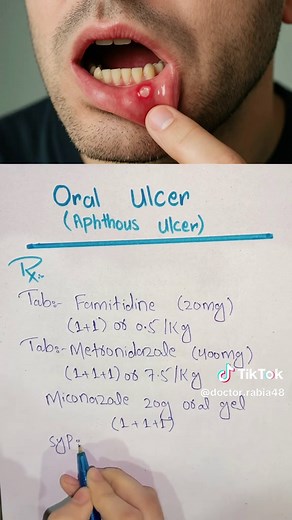 Oral Ulcer
(Aphthous Ulcer)
Rx:-
Tab:- Famitidine (20mg)
(1+1) or 0.5/Kg
Tab:- Metronidazole (400mg)
(1+1+1) or 7.5/Kg
TikTok
@doctor.rabia48
Miconazole 20g oral gel
(1+1+1)
Syp: